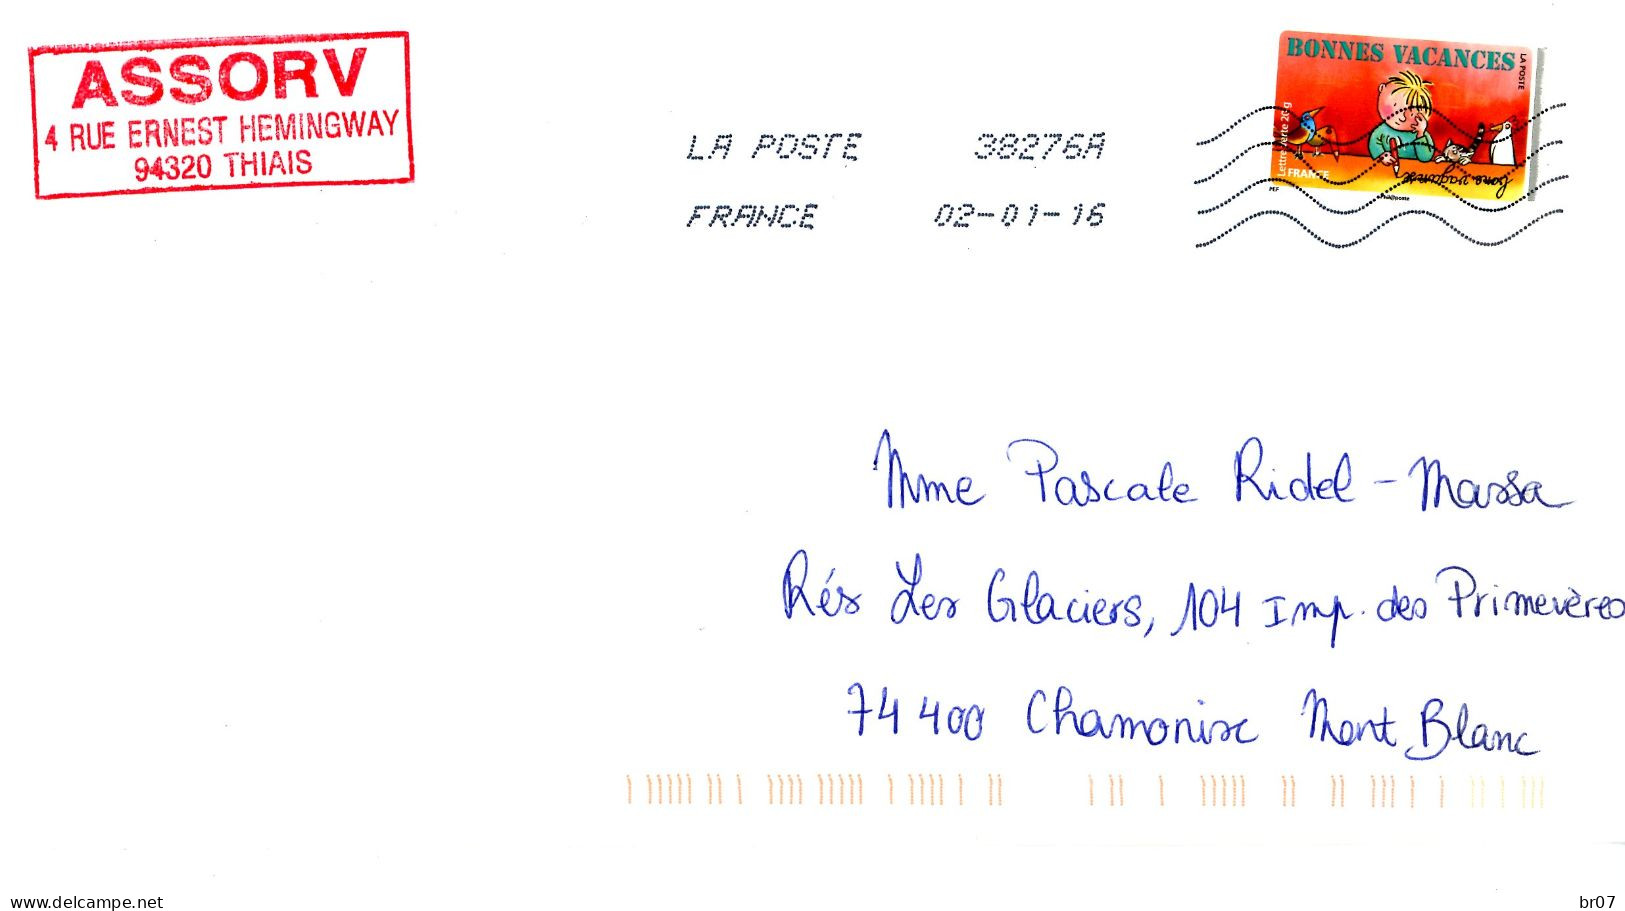 ASSORV
4 RUE ERNEST HEMINGWAY
94320 THIAIS
LA POSTE 38276A
FRANCE 02-01-16
BONNES VACANCES
LA POSTE
Lettre verte 20 g
FRANCE
PHIL@poste
Mme Pascale Ridel - Massa
Rés Les Glaciers, 104 Imp. des Primevères
74400 Chamonix Mont Blanc
www.delcampe.net
br07